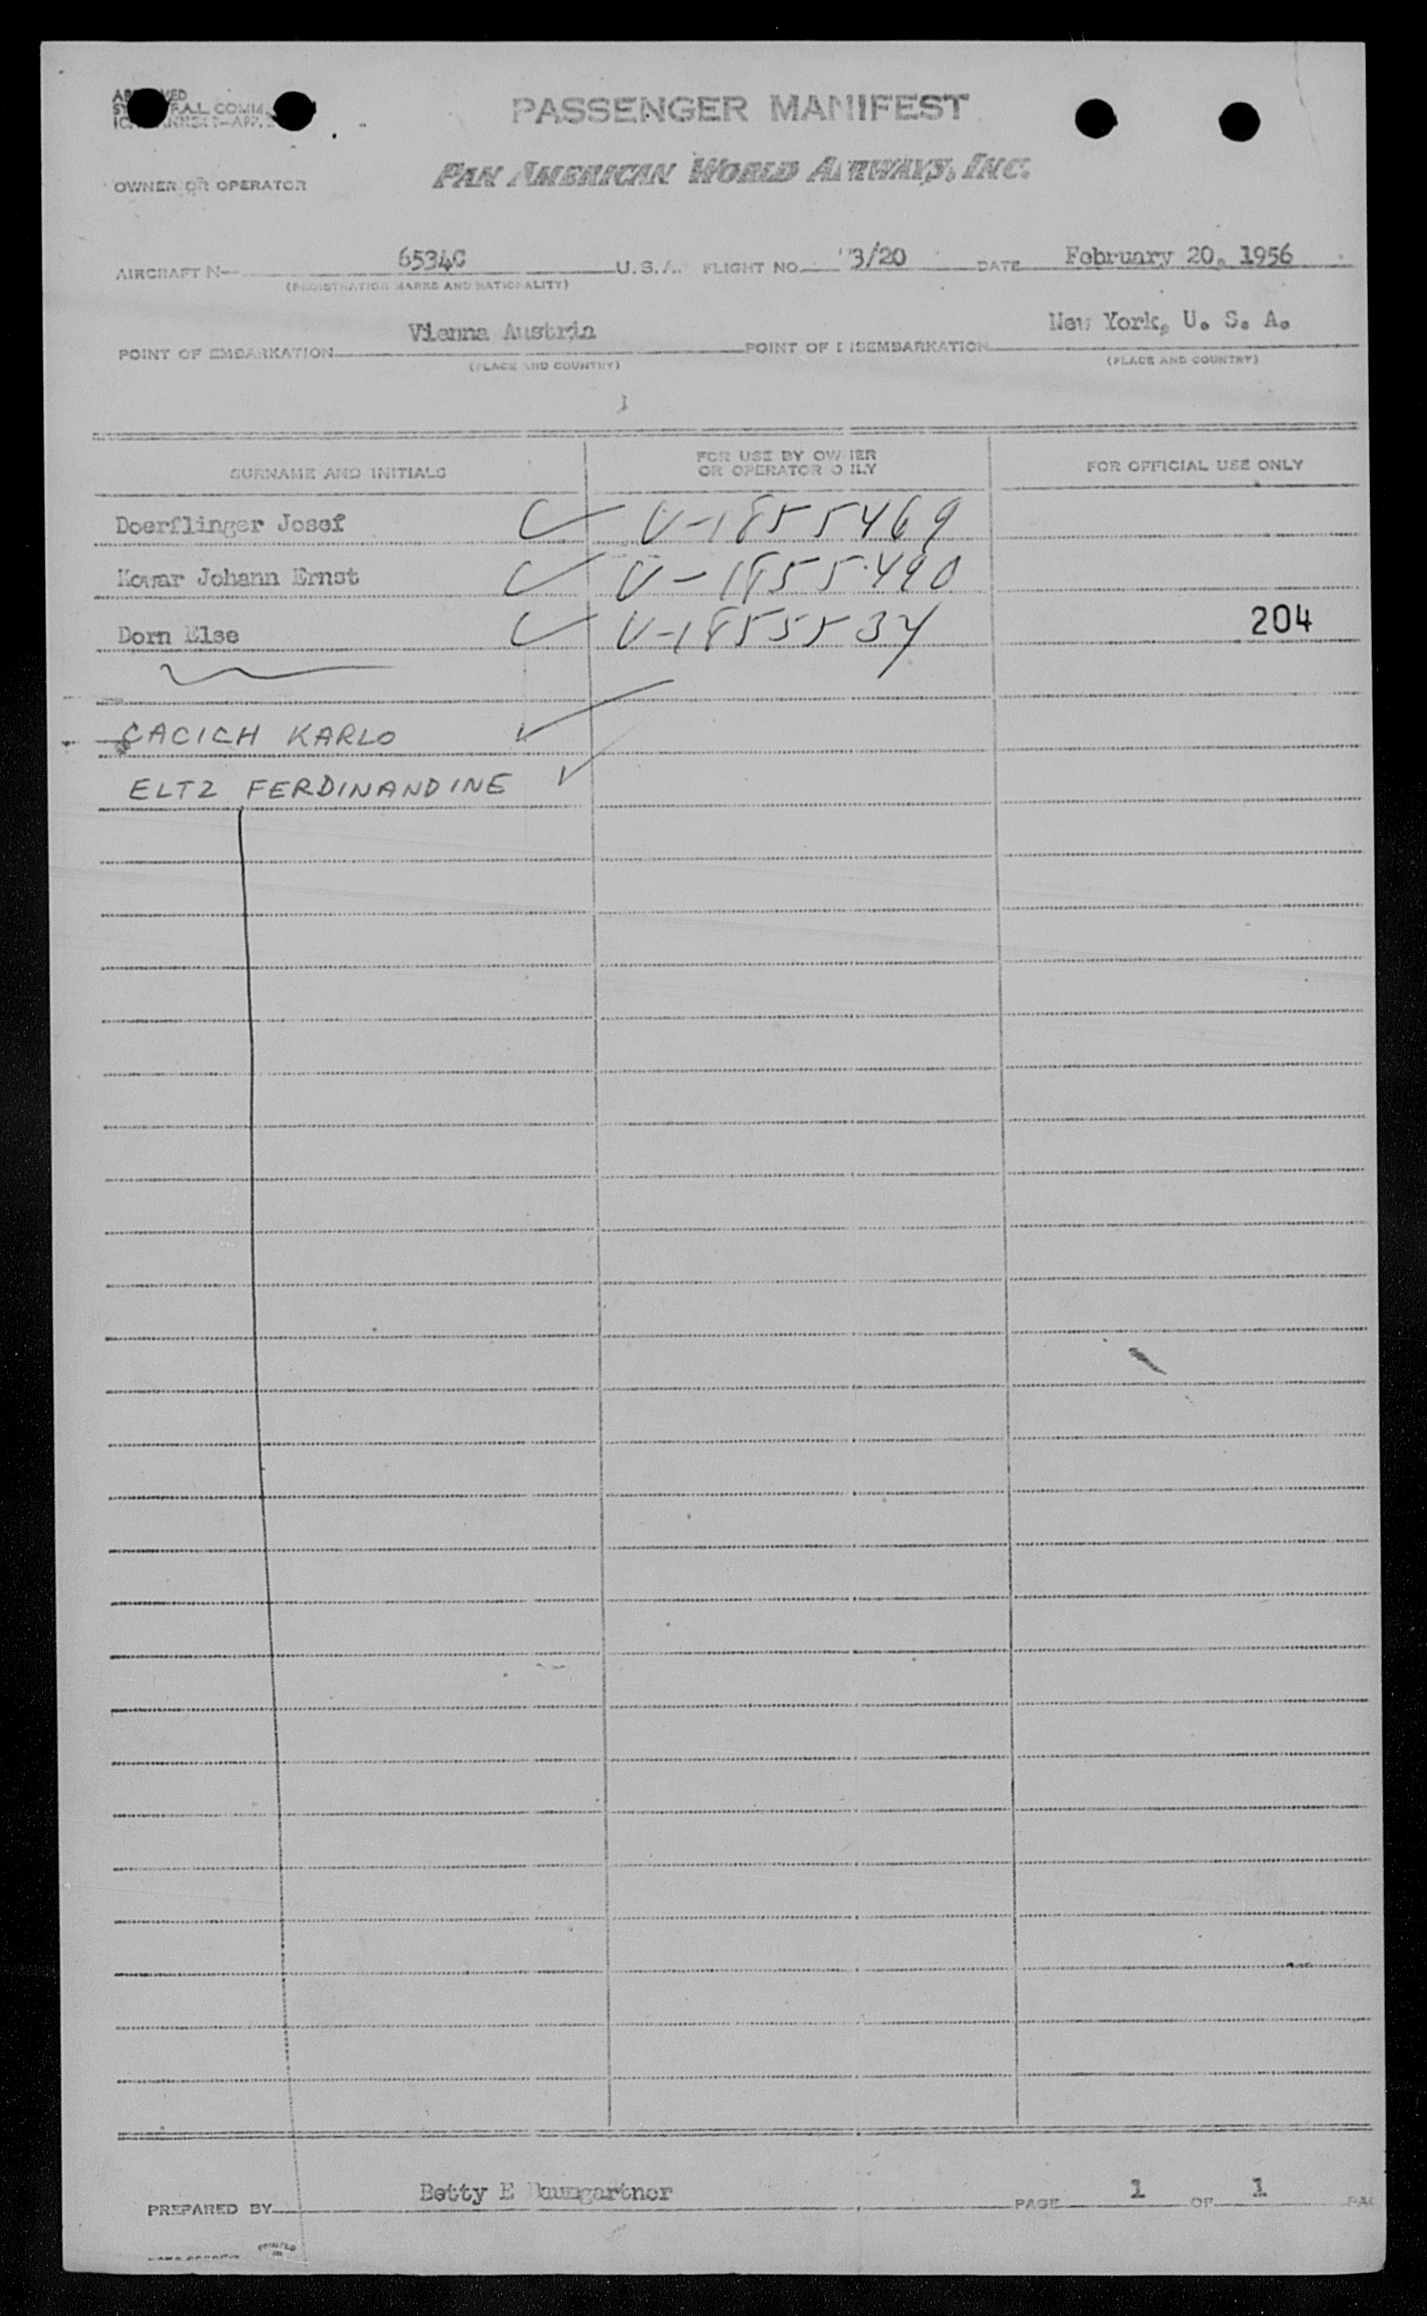 PASSENGER MANIFEST
OWNER OR OPERATOR
PAN AMERICAN WORLD AIRWAYS, INC.
AIRCRAFT N- 6534C U.S.A. FLIGHT NO. 3/20 DATE February 20, 1956
(REGISTRATION MARKS AND NATIONALITY)
POINT OF EMBARKATION Vienna Austria POINT OF DISEMBARKATION New York, U. S. A.
(PLACE AND COUNTRY) (PLACE AND COUNTRY)
SURNAME AND INITIALS FOR USE BY OWNER OR OPERATOR ONLY FOR OFFICIAL USE ONLY
Doerflinger Josef V-1855469
Kowar Johann Ernst V-1855490
Dorn Else V-1855534 204
CACICH KARLO
ELTZ FERDINANDINE
PREPARED BY Betty E Baumgartner PAGE 1 OF 1